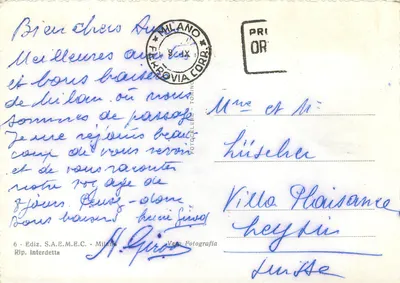 Bien chers Amis
Meilleures amitiés
et bons baisers
de Milan où nous
sommes de passage
Je me réjouis beau
coup de vous revoir
et de vous raconter
notre voyage de
8 jours
vous
6 - Ediz. S.A.E.M.E.C. - Milano
Rip. interdetta
Vera Fotografia
MILANO
FERROVIA CORR.
PRI
OR
Mme et Mr
Lüscher
Villa Plaisance
Leysin
Suisse